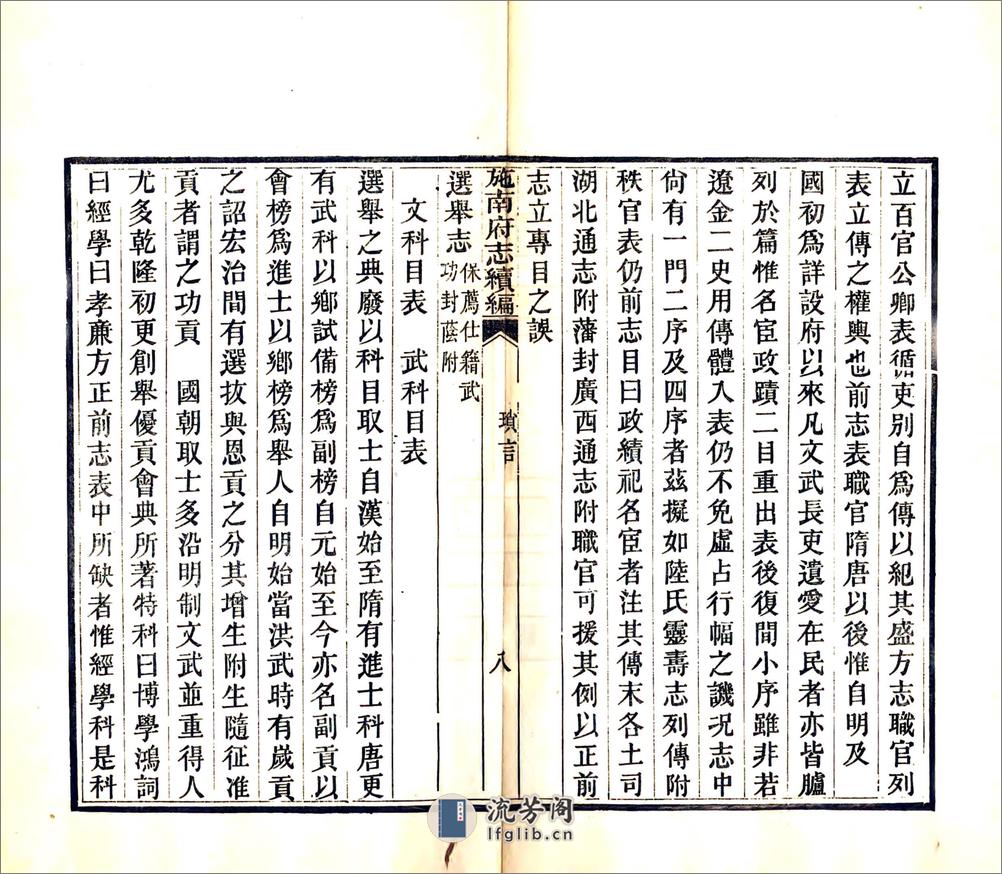 立百官公卿表循吏別自爲傳以紀其盛方志職官列
表立傳之權輿也前志表職官隋唐以後惟自明及
國初爲詳設府以來凡文武長吏遺愛在民者亦皆臚
列於篇惟名宦政蹟二目重出表後復間小序雖非若
遼金二史用傳體入表仍不免虛占行幅之譏況志中
尙有一門二序及四序者茲擬如陸氏靈壽志列傳附
秩官表仍前志目曰政績祀名宦者注其傳末各土司
湖北通志附藩封廣西通志附職官可援其例以正前
志立專目之誤
施南府志續編 瑣言 八
選舉志 保薦仕籍武功封蔭附
文科目表 武科目表
選舉之典廢以科目取士自漢始至隋有進士科唐更
有武科以鄉試備榜爲副榜自元始至今亦名副貢以
會榜爲進士以鄉榜爲舉人自明始當洪武時有歲貢
之詔宏治間有選拔與恩貢之分其增生附生隨征准
貢者謂之功貢 國朝取士多沿明制文武並重得人
尤多乾隆初更創舉優貢會典所著特科曰博學鴻詞
曰經學曰孝廉方正前志表中所缺者惟經學科是科
流芳阁
lfglib.cn